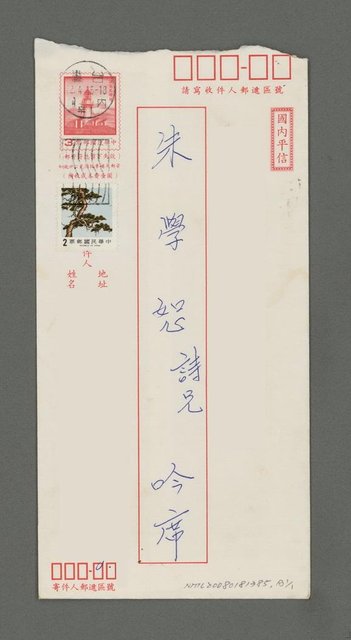 請寫收件人郵遞區號
國內平信
朱學恕詩兄 吟席
中華民國郵票
2
許人
地址
姓名
寄件人郵遞區號
NMTL20080181385, B1/1